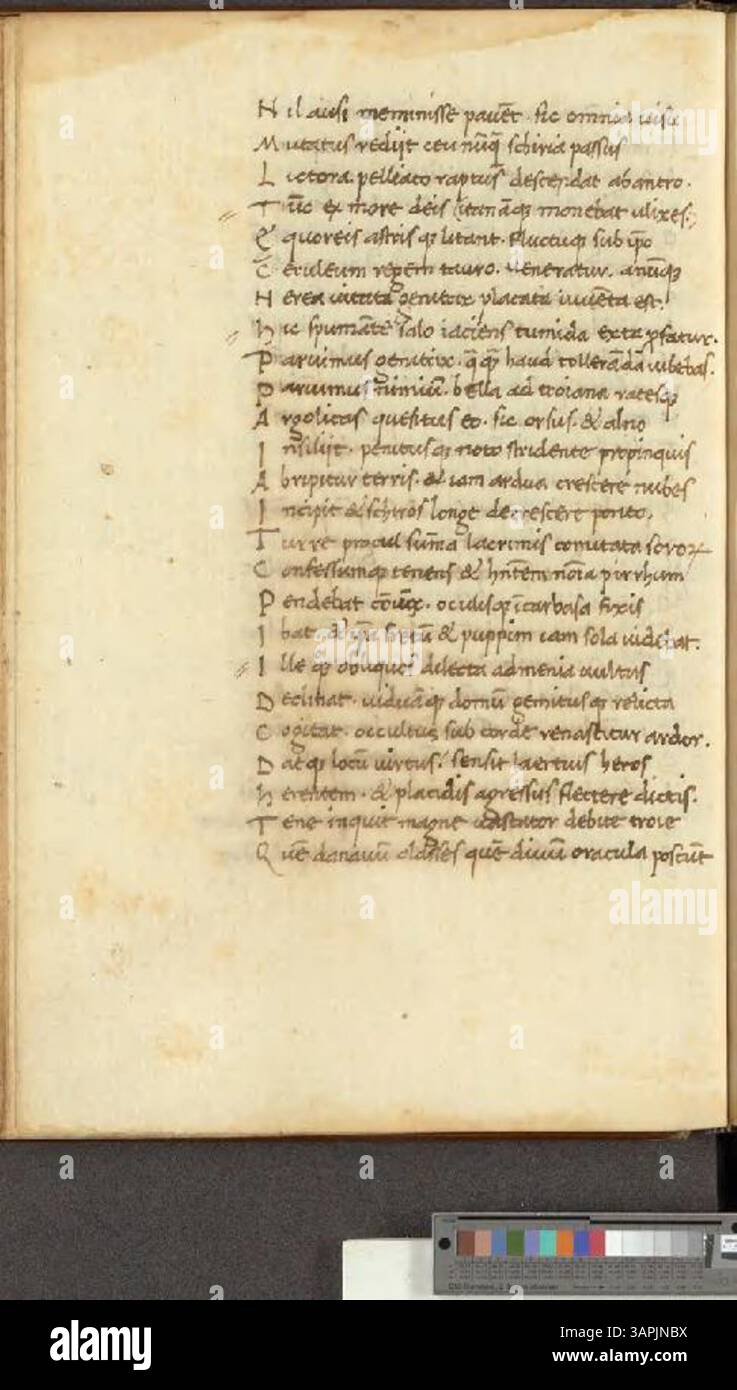 N il ausi meminisse pauēt. sic omnia uisu
M utatus redijt ceu nūq̄ schiria passus
L uctora. pelliaco raptus descendat ab antro.
T ūc ex more deis itanāq; monebat ulixes.
E quoreis astris q; litant. fluctuq; sub ip̄o
C eruleum regem tauro. ueneratur. auūq;
N erea uittata genitrix placata iuuenta est.
h ic spumāte salo iaciens tumida exta p̄fatur.
P aruimus genitrix. q̄ q̄ haud tollerāda iubebas.
P aruimus nimiū. bella ad troiana ratesq;
A rgolicas quesitus eo. sic orsus. & alno
I nsilijt. penitusq; noto stridente propinquis
A bripitur terris. & iam ardua crescere nubes
I ncipit & schiros longe decrescere ponto.
T urre procul sūma lacrimis comitata soror
C onfessumq; tenens & hn̄tem noīa pirrhum
P endebat cōiux. oculisq; ī carbasa fixis
I bat. & fretū & puppim iam sola uidebat.
I lle q; obliquos dilecta ad menia uultus
D eclinat. uiduāq; domū gemitusq; relicta
C ogitat. occultus sub corde renascitur ardor.
D atq; locū uirtus. sensit laertius heros
h erentem. & placidis agressus flectere dictis.
T ene inquit magne uastator debite troie
Q uē danaum classes quē diuum oracula poscūt
alamy
Image ID: 3APJNBX
www.alamy.com